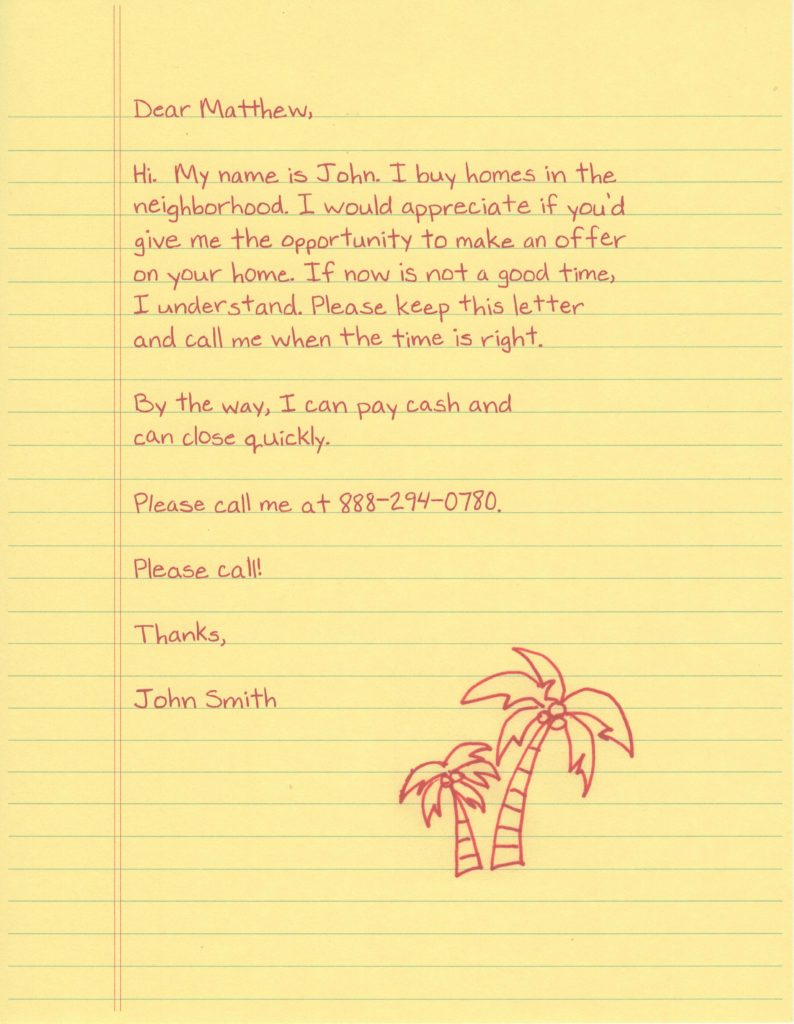 Dear Matthew,
Hi. My name is John. I buy homes in the
neighborhood. I would appreciate if you'd
give me the opportunity to make an offer
on your home. If now is not a good time,
I understand. Please keep this letter
and call me when the time is right.
By the way, I can pay cash and
can close quickly.
Please call me at 888-294-0780.
Please call!
Thanks,
John Smith